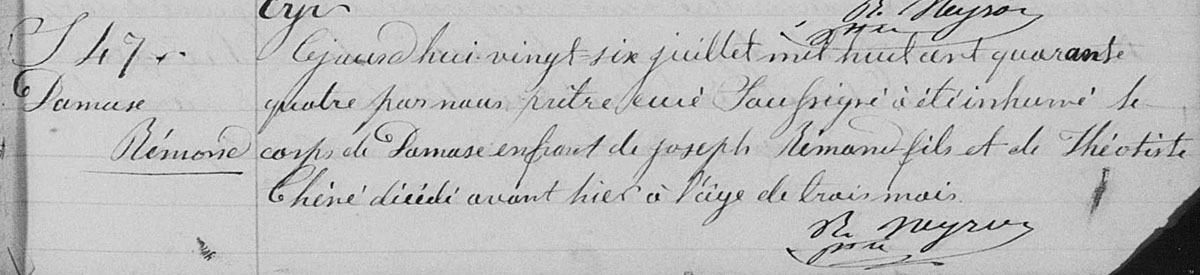 R. Neyron
ptre
S 47
Damase
Rémond
Cejourd'hui vingt-six juillet mil huit cent quarante
quatre par nous prêtre curé Soussigné à été inhumé le
corps de Damase enfant de joseph Rémond fils et de Théotiste
Chéné décédé avant hier à l'âge de trois mois.
R. Neyron
ptre